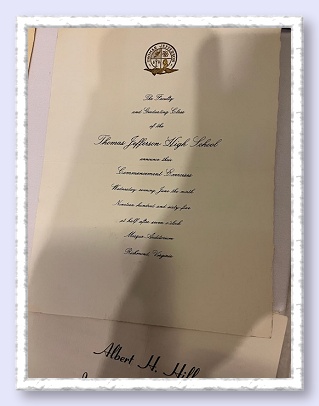 The Faculty
and Graduating Class
of the
Thomas Jefferson High School
announce their
Commencement Exercises
Wednesday evening, June the ninth
Nineteen hundred and sixty-five
at half after seven o'clock
Mosque Auditorium
Richmond, Virginia
Albert H. Hill